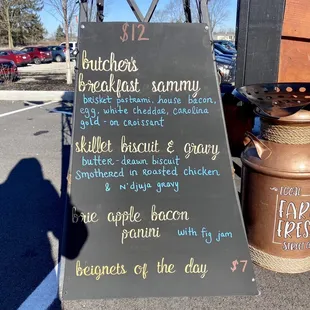 $12
butcher's
breakfast sammy
brisket pastrami, house bacon,
egg, white cheddar, carolina
gold - on croissant
skillet biscuit & gravy
butter-drawn biscuit
smothered in roasted chicken
& n'djuja gravy
brie apple bacon
panini with fig jam
beignets of the day $7
LOCAL
FAR
FRES
SINCE